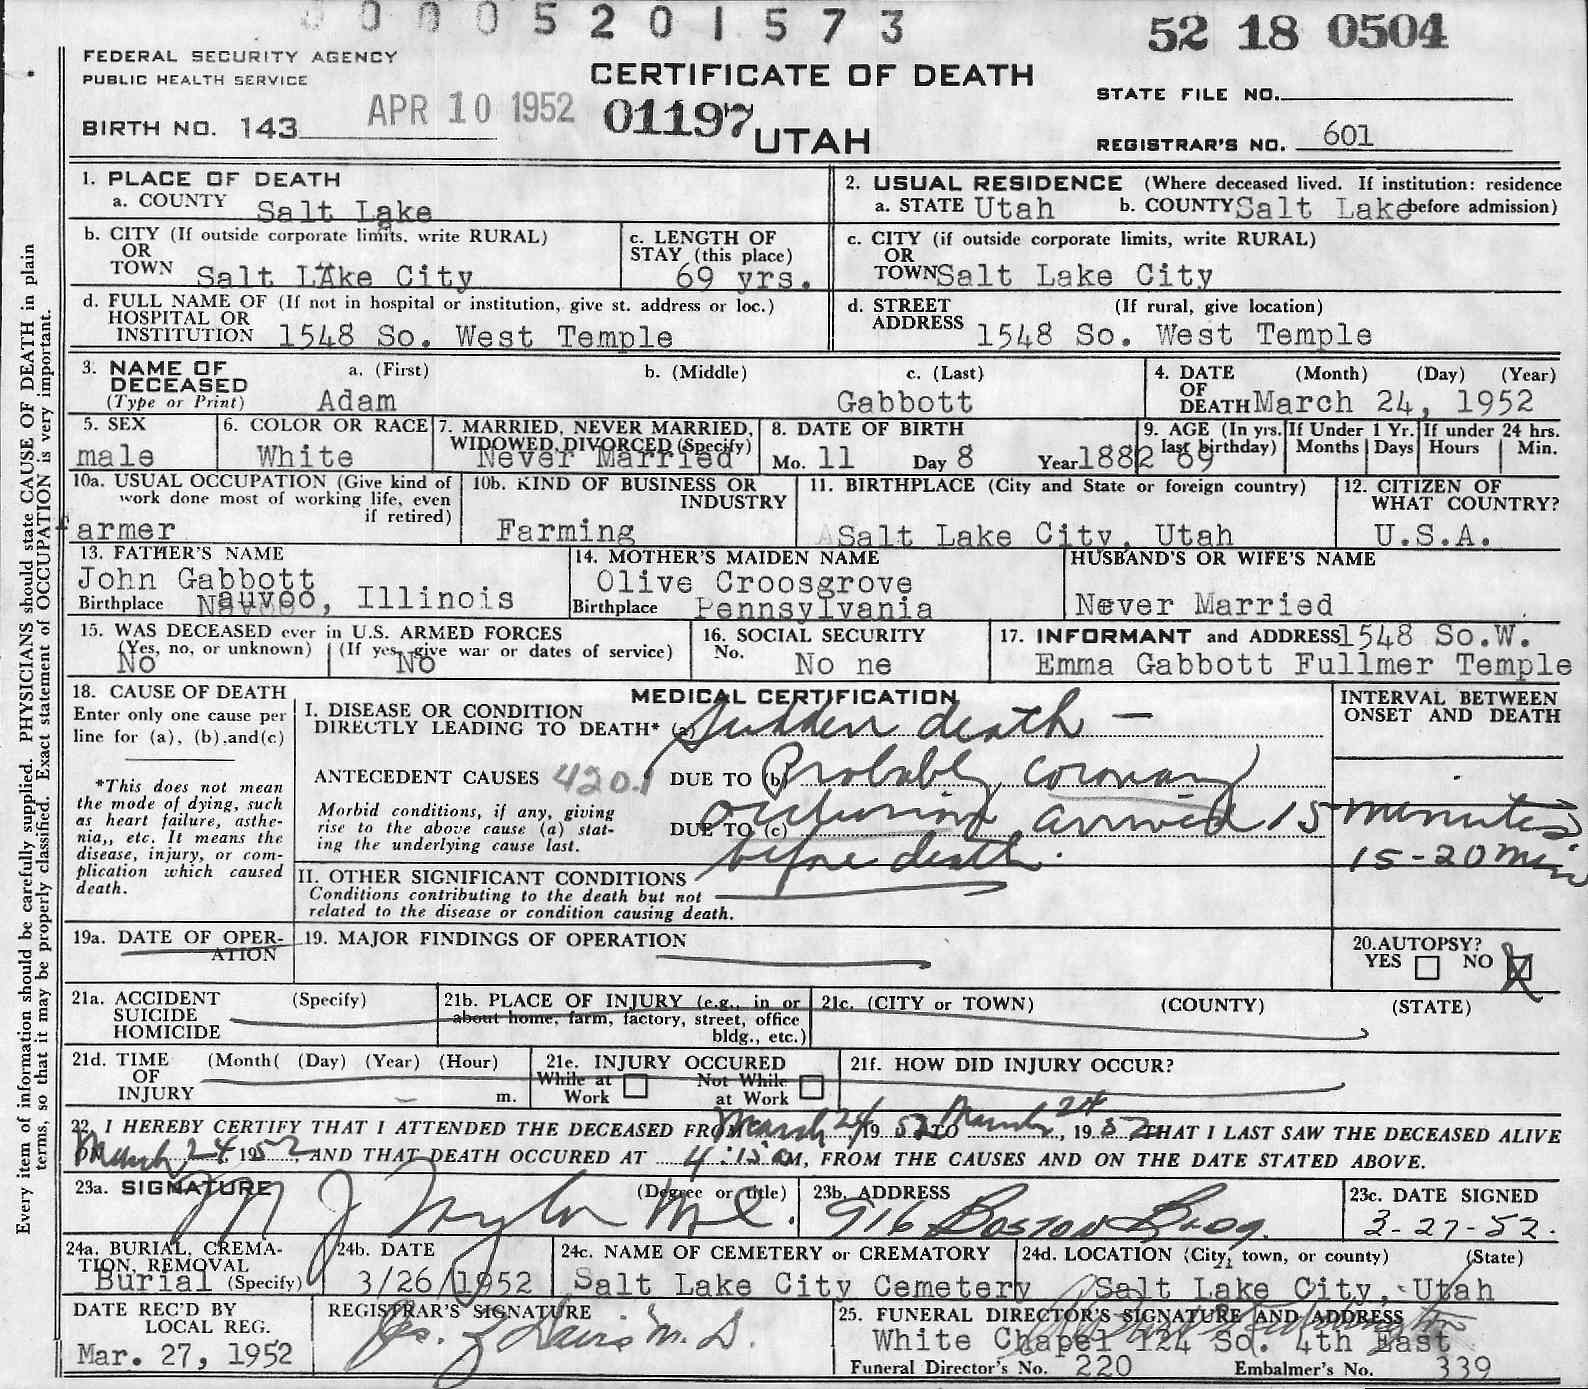 0 0 0 5 2 0 1 5 7 3
52 18 0504
FEDERAL SECURITY AGENCY
PUBLIC HEALTH SERVICE
CERTIFICATE OF DEATH
STATE FILE NO.
APR 10 1952
BIRTH NO. 143
01197
UTAH
REGISTRAR'S NO. 601
1. PLACE OF DEATH
a. COUNTY Salt Lake
2. USUAL RESIDENCE (Where deceased lived. If institution: residence before admission)
a. STATE Utah b. COUNTY Salt Lake
b. CITY (If outside corporate limits, write RURAL)
OR
TOWN Salt LAke City
c. LENGTH OF
STAY (this place)
69 yrs.
c. CITY (if outside corporate limits, write RURAL)
OR
TOWN Salt Lake City
d. FULL NAME OF (If not in hospital or institution, give st. address or loc.)
HOSPITAL OR
INSTITUTION 1548 So. West Temple
d. STREET (If rural, give location)
ADDRESS 1548 So. West Temple
3. NAME OF
DECEASED
(Type or Print)
a. (First) b. (Middle) c. (Last)
Adam Gabbott
4. DATE (Month) (Day) (Year)
OF
DEATH March 24, 1952
5. SEX
male
6. COLOR OR RACE
White
7. MARRIED, NEVER MARRIED,
WIDOWED, DIVORCED (Specify)
Never Married
8. DATE OF BIRTH
Mo. 11 Day 8 Year 1882
9. AGE (In yrs. last birthday)
69
If Under 1 Yr.
Months Days
If under 24 hrs.
Hours Min.
10a. USUAL OCCUPATION (Give kind of
work done most of working life, even
if retired)
farmer
10b. KIND OF BUSINESS OR
INDUSTRY
Farming
11. BIRTHPLACE (City and State or foreign country)
Salt Lake City, Utah
12. CITIZEN OF
WHAT COUNTRY?
U.S.A.
13. FATHER'S NAME
John Gabbott
Birthplace Nauvoo, Illinois
14. MOTHER'S MAIDEN NAME
Olive Croosgrove
Birthplace Pennsylvania
HUSBAND'S OR WIFE'S NAME
Never Married
15. WAS DECEASED ever in U.S. ARMED FORCES
(Yes, no, or unknown) (If yes, give war or dates of service)
No No
16. SOCIAL SECURITY
No.
No ne
17. INFORMANT and ADDRESS 1548 So.W.
Emma Gabbott Fullmer Temple
18. CAUSE OF DEATH
Enter only one cause per
line for (a), (b), and(c)
*This does not mean
the mode of dying, such
as heart failure, asthe-
nia,, etc. It means the
disease, injury, or com-
plication which caused
death.
MEDICAL CERTIFICATION
I. DISEASE OR CONDITION
DIRECTLY LEADING TO DEATH* (a) Sudden death —
ANTECEDENT CAUSES 420.1 DUE TO (b) Probably coronary
Morbid conditions, if any, giving
rise to the above cause (a) stat-
ing the underlying cause last.
DUE TO (c) arrived 15 minutes
before death.
INTERVAL BETWEEN
ONSET AND DEATH
15-20 min
II. OTHER SIGNIFICANT CONDITIONS
Conditions contributing to the death but not
related to the disease or condition causing death.
19a. DATE OF OPER-
ATION
19. MAJOR FINDINGS OF OPERATION
20. AUTOPSY?
YES NO X
21a. ACCIDENT (Specify)
SUICIDE
HOMICIDE
21b. PLACE OF INJURY (e.g., in or
about home, farm, factory, street, office
bldg., etc.)
21c. (CITY or TOWN) (COUNTY) (STATE)
21d. TIME (Month( (Day) (Year) (Hour)
OF
INJURY m.
21e. INJURY OCCURED
While at Not While
Work at Work
21f. HOW DID INJURY OCCUR?
22. I HEREBY CERTIFY THAT I ATTENDED THE DECEASED FROM March 24 1952 TO March 24, 1952 THAT I LAST SAW THE DECEASED ALIVE
ON March 24, 1952, AND THAT DEATH OCCURED AT 4:15 a M, FROM THE CAUSES AND ON THE DATE STATED ABOVE.
23a. SIGNATURE (Degree or title)
J Taylor M.D.
23b. ADDRESS
916 Boston Bldg.
23c. DATE SIGNED
3-27-52.
24a. BURIAL, CREMA-
TION, REMOVAL
Burial (Specify)
24b. DATE
3/26/1952
24c. NAME OF CEMETERY or CREMATORY
Salt Lake City Cemetery
24d. LOCATION (City, town, or county) (State)
Salt Lake City, Utah
DATE REC'D BY
LOCAL REG.
Mar. 27, 1952
REGISTRAR'S SIGNATURE
Davis M.D.
25. FUNERAL DIRECTOR'S SIGNATURE AND ADDRESS
White Chapel 124 So. 4th East
Funeral Director's No. 220 Embalmer's No. 339
Every item of information should be carefully supplied. PHYSICIANS should state CAUSE OF DEATH in plain
terms, so that it may be properly classified. Exact statement of OCCUPATION is very important.